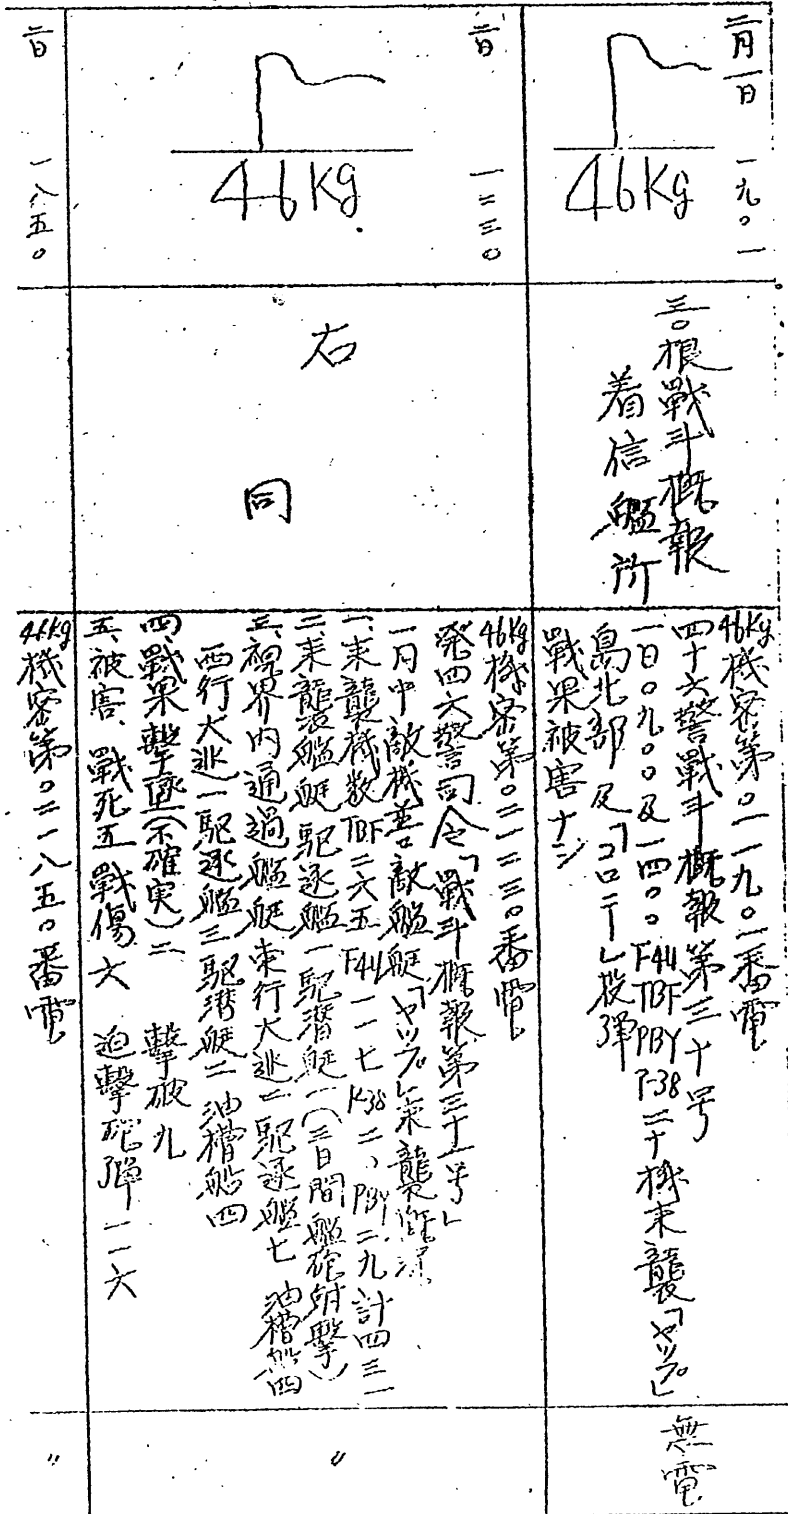 二月一日 一九〇一
46Kg
三〇根戰斗概報
着信艦所
46Kg機密第〇一一九〇一番電
四十六警戰斗概報第三十号
一日〇九〇〇及一四〇〇F4U TBF PBY P-38二十機来襲「ヤップ」
島北部及「コロニー」投弾
戰果被害ナシ
無電
二日 一二三〇
46Kg
右同
46Kg機密第〇二一二三〇番電
発四六警司令「戰斗概報第三十一号」
一月中敵機並ニ敵艦艇「ヤップ」来襲
一、来襲機数TBF二六五 F4U一一七 P-38二〇 PBY二九計四三一
二、来襲艦艇 駆逐艦一駆潜艇一(三日間艦砲射撃)
三、視界内通過艦艇 東行大巡二駆逐艦七 油槽船四
西行大巡一駆逐艦三駆潜艇二油槽船四
四、戰果 擊墜(不確実)二 擊破九
五、被害 戰死五戰傷六 迫擊砲彈一一六
〃
二日 一八五〇
46Kg機密第〇二一八五〇番電
〃